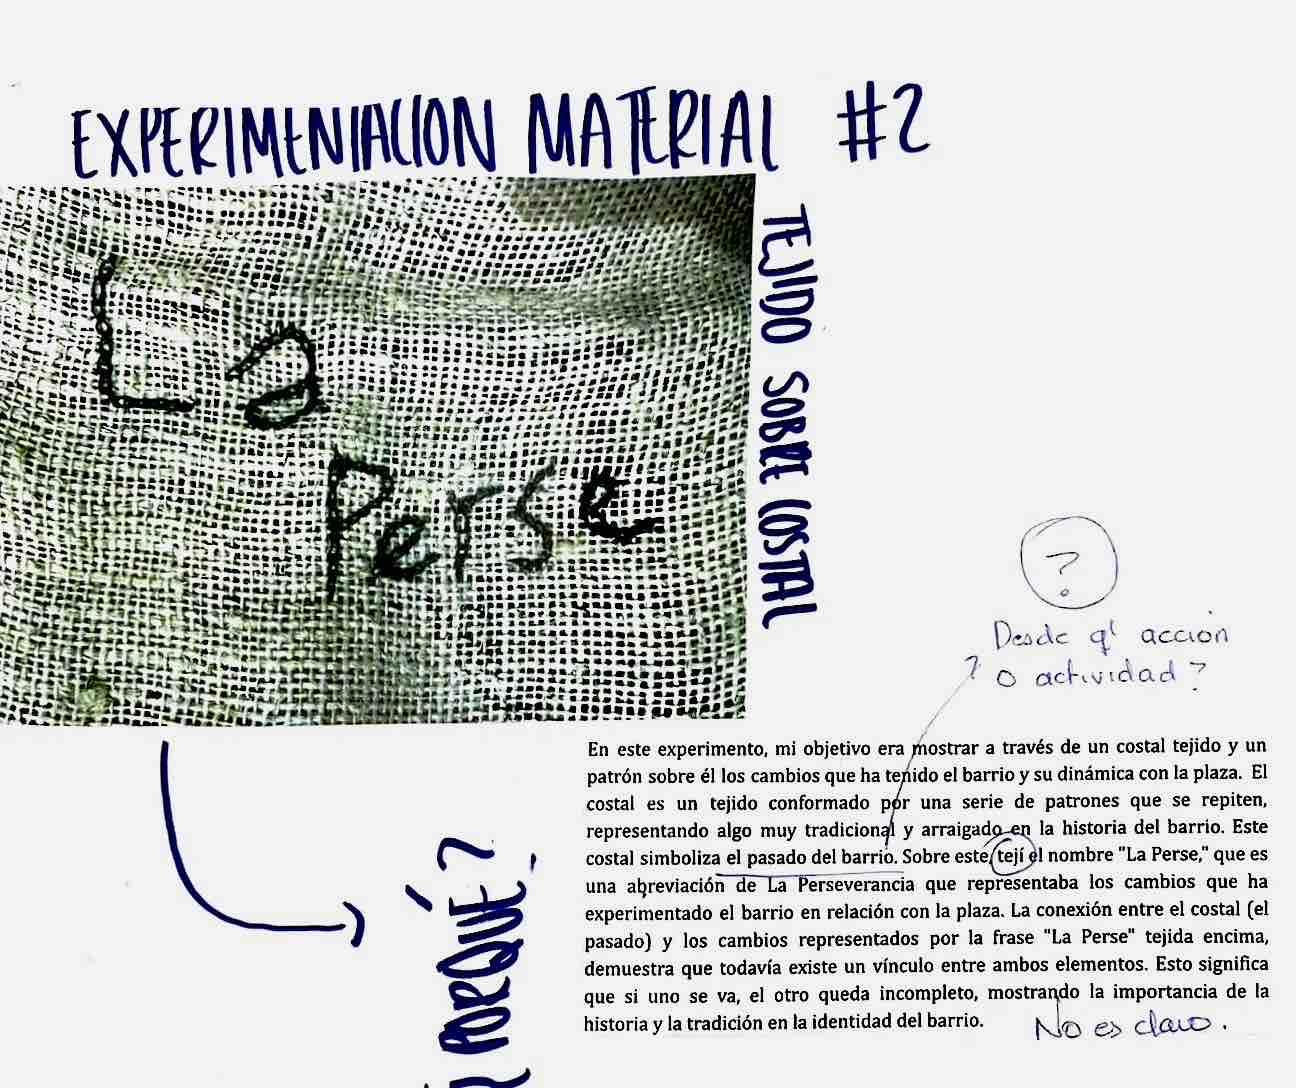 EXPERIMENTACION MATERIAL #2
La
Perse
TEJIDO SOBRE COSTAL
?
Desde q' acción
? o actividad?
En este experimento, mi objetivo era mostrar a través de un costal tejido y un
patrón sobre él los cambios que ha tenido el barrio y su dinámica con la plaza. El
costal es un tejido conformado por una serie de patrones que se repiten,
representando algo muy tradicional y arraigado en la historia del barrio. Este
costal simboliza el pasado del barrio. Sobre este tejí el nombre "La Perse," que es
una abreviación de La Perseverancia que representaba los cambios que ha
experimentado el barrio en relación con la plaza. La conexión entre el costal (el
pasado) y los cambios representados por la frase "La Perse" tejida encima,
demuestra que todavía existe un vínculo entre ambos elementos. Esto significa
que si uno se va, el otro queda incompleto, mostrando la importancia de la
historia y la tradición en la identidad del barrio.
No es claro.
¿PORQUÉ?